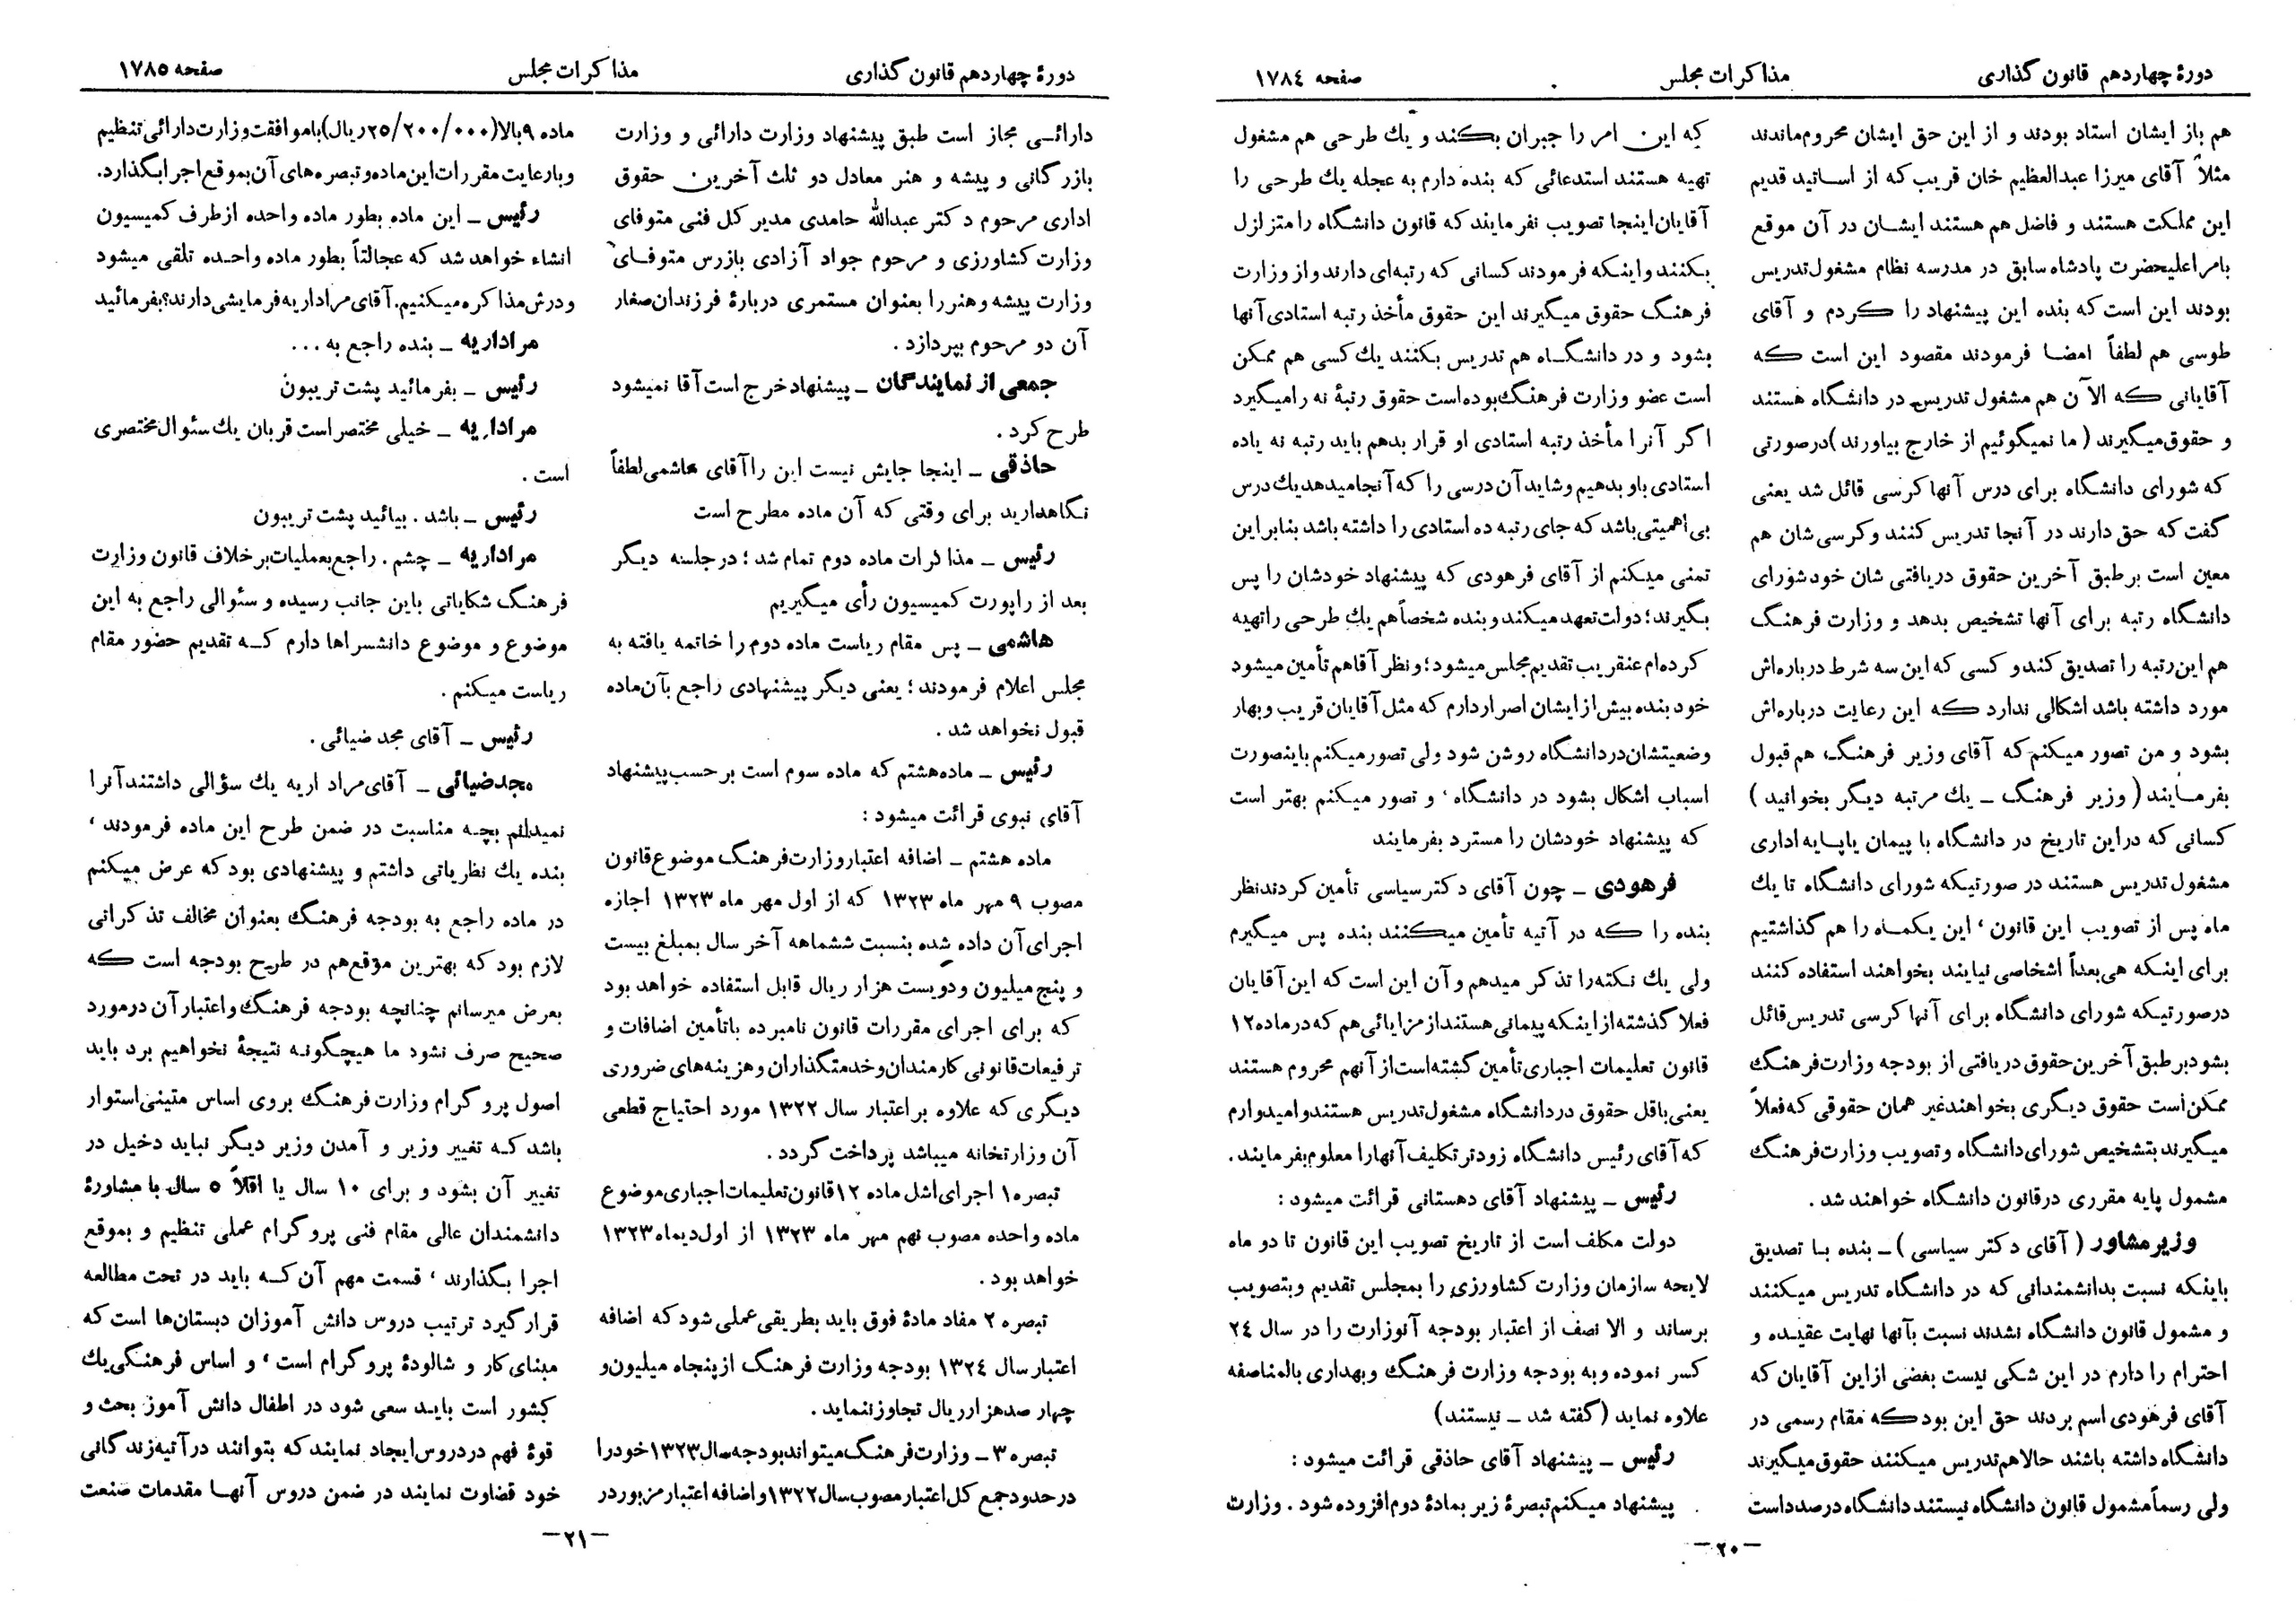 دورهٔ چهاردهم قانون گذاری
مذاکرات مجلس
صفحه ۱۷۸٤
هم باز ایشان استاد بودند و از این حق ایشان محروم‌ماندند
مثلاً آقای میرزا عبدالعظیم خان قریب که از اساتید قدیم
این مملکت هستند و فاضل هم هستند ایشان در آن موقع
بامراعلیحضرت پادشاه سابق در مدرسه نظام مشغول‌تدریس
بودند این است که بنده این پیشنهاد را کردم و آقای
طوسی هم لطفاً امضا فرمودند مقصود این است که
آقایانی که الآن هم مشغول تدریس در دانشگاه هستند
و حقوق‌میگیرند (ما نمیگوئیم از خارج بیاورند) درصورتی
که شورای دانشگاه برای درس آنها کرسی قائل شد یعنی
گفت که حق دارند در آنجا تدریس کنند و کرسی شان هم
معین است بر طبق آخرین حقوق دریافتی شان خود شورای
دانشگاه رتبه برای آنها تشخیص بدهد و وزارت فرهنگ
هم این رتبه را تصدیق کند و کسی که این سه شرط درباره‌اش
مورد داشته باشد اشکالی ندارد که این رعایت درباره‌اش
بشود و من تصور میکنم که آقای وزیر فرهنگ هم قبول
بفرمایند (وزیر فرهنگ ـ یك مرتبه دیگر بخوانید)
کسانی که دراین تاریخ در دانشگاه با پیمان یا پایه اداری
مشغول تدریس هستند در صورتیکه شورای دانشگاه تا یك
ماه پس از تصویب این قانون ، این یکماه را هم گذاشتیم
برای اینکه هی بعداً اشخاصی نیایند بخواهند استفاده کنند
درصورتیکه شورای دانشگاه برای آنها کرسی تدریس قائل
بشود بر طبق آخرین حقوق دریافتی از بودجه وزارت فرهنگ
ممکن‌است حقوق دیگری بخواهند غیر همان حقوقی که فعلاً
میگیرند بتشخیص شورای دانشگاه و تصویب وزارت فرهنگ
مشمول پایه مقرری درقانون دانشگاه خواهند شد .
وزیر مشاور (آقای دکتر سیاسی) ـ بنده با تصدیق
باینکه نسبت بدانشمندانی که در دانشگاه تدریس میکنند
و مشمول قانون دانشگاه نشدند نسبت بآنها نهایت عقیده و
احترام را دارم در این شکی نیست بعضی از این آقایان که
آقای فرهودی اسم بردند حق این بود که مقام رسمی در
دانشگاه داشته باشند حالاهم تدریس میکنند حقوق میگیرند
ولی رسماً مشمول قانون دانشگاه نیستند دانشگاه درصدد است
که این امر را جبران بکند و یك طرحی هم مشغول
تهیه هستند استدعائی که بنده دارم به عجله یك طرحی را
آقایان اینجا تصویب نفرمایند که قانون دانشگاه را متزلزل
بکنند و اینکه فرمودند کسانی که رتبه‌ای دارند و از وزارت
فرهنگ حقوق میگیرند این حقوق مأخذ رتبه استادی آنها
بشود و در دانشگاه هم تدریس بکنند یك کسی هم ممکن
است عضو وزارت فرهنگ بوده است حقوق رتبهٔ نه را میگیرد
اگر آنرا مأخذ رتبه استادی او قرار بدهم باید رتبه نه یا ده
استادی باو بدهیم و شاید آن درسی را که آنجا میدهد یك درس
بی اهمیتی باشد که جای رتبه ده استادی را داشته باشد بنابراین
تمنی میکنم از آقای فرهودی که پیشنهاد خودشان را پس
بگیرند؛ دولت تعهد میکند و بنده شخصاً هم یك طرحی را تهیه
کرده‌ام عنقریب تقدیم مجلس میشود؛ و نظر آقا هم تأمین میشود
خود بنده بیش از ایشان اصرار دارم که مثل آقایان قریب و بهار
وضعیتشان در دانشگاه روشن شود ولی تصور میکنم باینصورت
اسباب اشکال بشود در دانشگاه ، و تصور میکنم بهتر است
که پیشنهاد خودشان را مسترد بفرمایند
فرهودی ـ چون آقای دکتر سیاسی تأمین کردند نظر
بنده را که در آتیه تأمین میکنند بنده پس میگیرم
ولی یك نکته را تذکر میدهم و آن این است که این آقایان
فعلا گذشته از اینکه پیمانی هستند از مزایائی هم که در ماده ۱۲
قانون تعلیمات اجباری تأمین گشته است از آنهم محروم هستند
یعنی باقل حقوق در دانشگاه مشغول تدریس هستند و امیدوارم
که آقای رئیس دانشگاه زودتر تکلیف آنها را معلوم بفرمایند .
رئیس ـ پیشنهاد آقای دهستانی قرائت میشود :
دولت مکلف است از تاریخ تصویب این قانون تا دو ماه
لایحه سازمان وزارت کشاورزی را بمجلس تقدیم و بتصویب
برساند و الا نصف از اعتبار بودجه آنوزارت را در سال ۲٤
کسر نموده و به بودجه وزارت فرهنگ و بهداری بالمناصفه
علاوه نماید (گفته شد ـ نیستند)
رئیس ـ پیشنهاد آقای حاذقی قرائت میشود :
پیشنهاد میکنم تبصرهٔ زیر بمادهٔ دوم افزوده شود . وزارت
ـ۲۰ـ
دورهٔ چهاردهم قانون گذاری
مذاکرات مجلس
صفحه ۱۷۸۵
دارائی مجاز است طبق پیشنهاد وزارت دارائی و وزارت
بازرگانی و پیشه و هنر معادل دو ثلث آخرین حقوق
اداری مرحوم دکتر عبدالله حامدی مدیر کل فنی متوفای
وزارت کشاورزی و مرحوم جواد آزادی بازرس متوفای
وزارت پیشه و هنر را بعنوان مستمری دربارهٔ فرزندان صغار
آن دو مرحوم بپردازد .
جمعی از نمایندگان ـ پیشنهاد خرج است آقا نمیشود
طرح کرد .
حاذقی ـ اینجا جایش نیست این را آقای هاشمی لطفاً
نگاهدارید برای وقتی که آن ماده مطرح است
رئیس ـ مذاکرات ماده دوم تمام شد ؛ در جلسه دیگر
بعد از راپورت کمیسیون رأی میگیریم
هاشمی ـ پس مقام ریاست ماده دوم را خاتمه یافته به
مجلس اعلام فرمودند ؛ یعنی دیگر پیشنهادی راجع بآن ماده
قبول نخواهد شد .
رئیس ـ ماده هشتم که ماده سوم است بر حسب پیشنهاد
آقای نبوی قرائت میشود :
ماده هشتم ـ اضافه اعتبار وزارت فرهنگ موضوع قانون
مصوب ۹ مهر ماه ۱۳۲۳ که از اول مهر ماه ۱۳۲۳ اجازه
اجرای آن داده شده بنسبت ششماهه آخر سال بمبلغ بیست
و پنج میلیون و دویست هزار ریال قابل استفاده خواهد بود
که برای اجرای مقررات قانون نامبرده با تأمین اضافات و
ترفیعات قانونی کارمندان و خدمتگذاران و هزینه‌های ضروری
دیگری که علاوه بر اعتبار سال ۱۳۲۲ مورد احتیاج قطعی
آن وزارتخانه میباشد پرداخت گردد .
تبصره۱ اجرای اشل ماده ۱۲ قانون تعلیمات اجباری موضوع
ماده واحده مصوب نهم مهر ماه ۱۳۲۳ از اول دیماه ۱۳۲۳
خواهد بود .
تبصره ۲ مفاد مادهٔ فوق باید بطریقی عملی شود که اضافه
اعتبار سال ۱۳۲٤ بودجه وزارت فرهنگ از پنجاه میلیون و
چهار صد هزار ریال تجاوز ننماید .
تبصره ۳ ـ وزارت فرهنگ میتواند بودجه سال ۱۳۲۳ خود را
در حدود جمع کل اعتبار مصوب سال ۱۳۲۲ و اضافه اعتبار مزبور در
ماده ۹ بالا (۲۵/۲۰۰/۰۰۰ریال) با موافقت وزارت دارائی تنظیم
و با رعایت مقررات این ماده و تبصره‌های آن بموقع اجرا بگذارد.
رئیس ـ این ماده بطور ماده واحده از طرف کمیسیون
انشاء خواهد شد که عجالتاً بطور ماده واحده تلقی میشود
و درش مذاکره میکنیم. آقای مراد اریه فرمایشی دارند؟ بفرمائید
مراداریه ـ بنده راجع به ...
رئیس ـ بفرمائید پشت تریبون
مراداریه ـ خیلی مختصر است قربان یك سئوال مختصری
است .
رئیس ـ باشد . بیائید پشت تریبون
مراداریه ـ چشم . راجع بعملیات بر خلاف قانون وزارت
فرهنگ شکایاتی باین جانب رسیده و سئوالی راجع به این
موضوع و موضوع دانشسراها دارم که تقدیم حضور مقام
ریاست میکنم .
رئیس ـ آقای مجد ضیائی .
مجدضیائی ـ آقای مراد اریه یك سؤالی داشتند آنرا
نمیدانم بچه مناسبت در ضمن طرح این ماده فرمودند ،
بنده یك نظریاتی داشتم و پیشنهادی بود که عرض میکنم
در ماده راجع به بودجه فرهنگ بعنوان مخالف تذکراتی
لازم بود که بهترین موقع هم در طرح بودجه است که
بعرض میرسانم چنانچه بودجه فرهنگ و اعتبار آن درمورد
صحیح صرف نشود ما هیچگونه نتیجهٔ نخواهیم برد باید
اصول پروگرام وزارت فرهنگ بروی اساس متینی استوار
باشد که تغییر وزیر و آمدن وزیر دیگر نباید دخیل در
تغییر آن بشود و برای ۱۰ سال یا اقلاً ۵ سال با مشاورهٔ
دانشمندان عالی مقام فنی پروگرام عملی تنظیم و بموقع
اجرا بگذارند ، قسمت مهم آن که باید در تحت مطالعه
قرار گیرد ترتیب دروس دانش آموزان دبستان‌ها است که
مبنای کار و شالودهٔ پروگرام است ، و اساس فرهنگی یك
کشور است باید سعی شود در اطفال دانش آموز بحث و
قوهٔ فهم در دروس ایجاد نمایند که بتوانند در آتیه زندگانی
خود قضاوت نمایند در ضمن دروس آنها مقدمات صنعت
ـ۲۱ـ